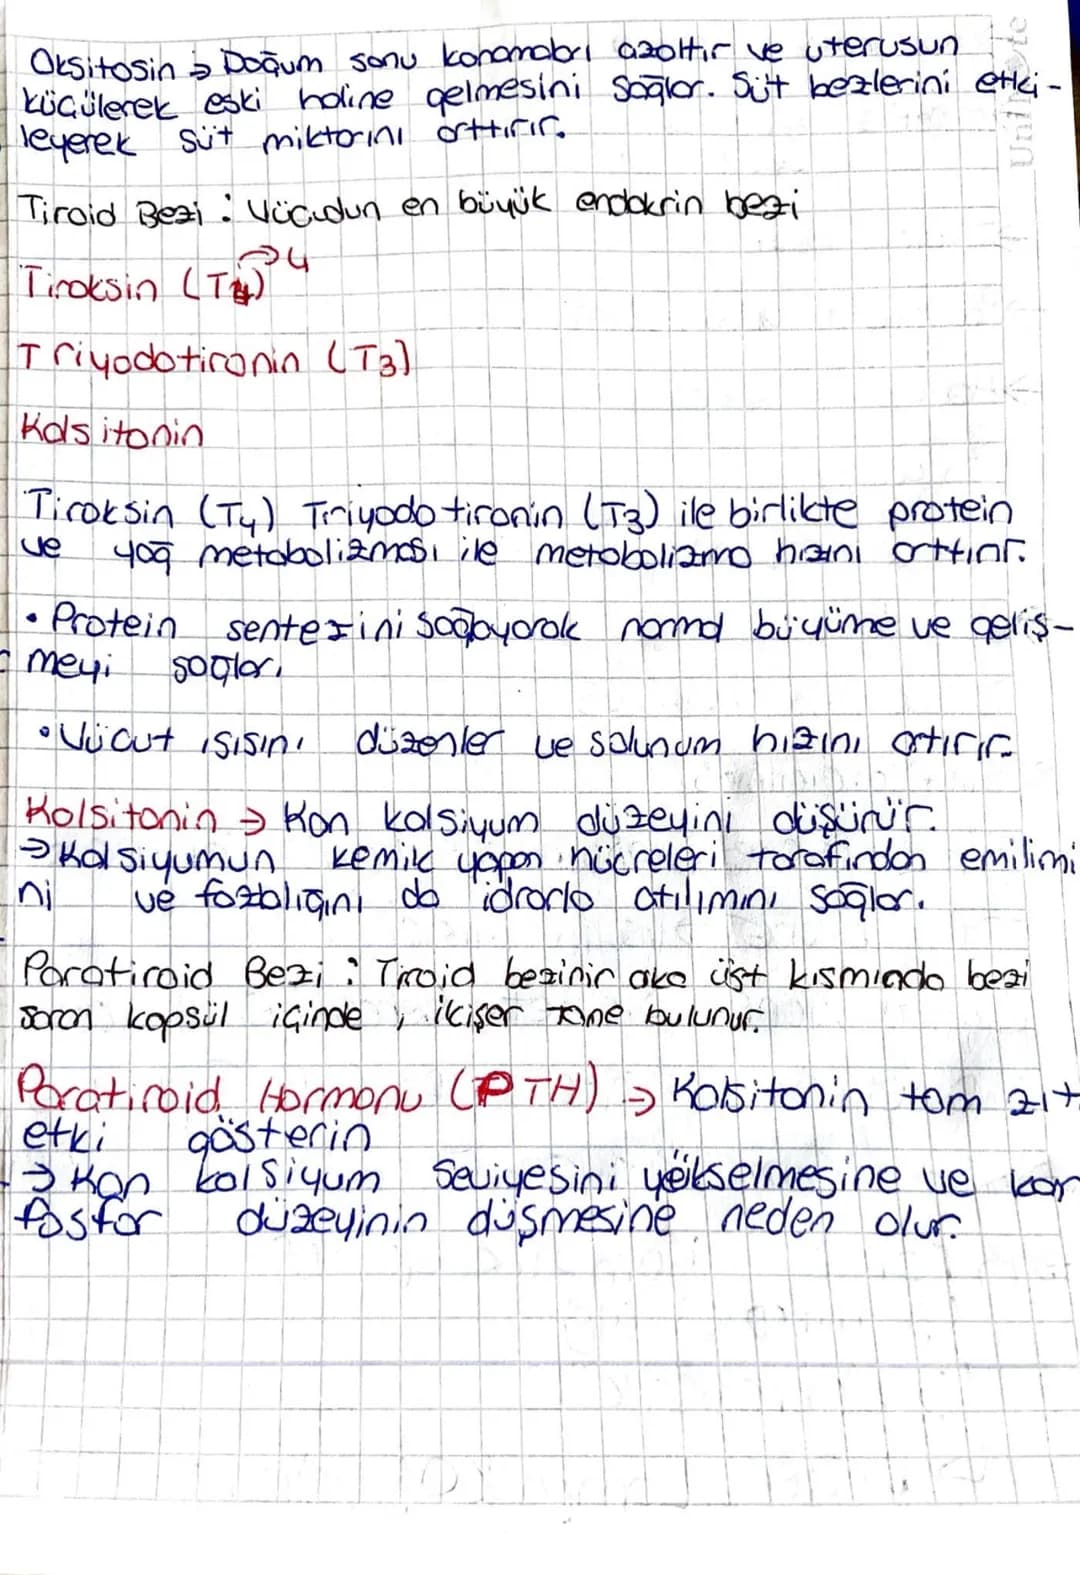 Oksitosin → Doğum sonu kanamaları azaltır ve uterusun
küçülerek eski haline gelmesini sağlar. Süt bezlerini etki-
leyerek süt miktarını arttırır.
Tiroid Bezi : Vücudun en büyük endokrin bezi
Tiroksin (T4) → 4
Triyodotironin (T3)
Kalsitonin
Tiroksin (T4) Tiriyodotironin (T3) ile birlikte protein
ve yağ metabolizması ile metabolizma hızını arttırır.
• Protein sentezini sağlayarak normal büyüme ve geliş-
meyi sağlar.
• Vücut ısısını düzenler ve solunum hızını artırır.
Kalsitonin → Kan kalsiyum düzeyini düşürür.
→ Kalsiyumun kemik yapan hücreleri tarafından emilimi
ni ve fazlalığını da idrarla atılımını sağlar.
Paratiroid Bezi : Tiroid bezinin arka üst kısmında bezi
saran kapsül içinde, ikişer tane bulunur.
Paratiroid Hormonu (PTH) → Kalsitonin tam zıt
etki gösterin
→ Kan kalsiyum seviyesini yükselmesine ve kan
fosfor düzeyinin düşmesine neden olur.